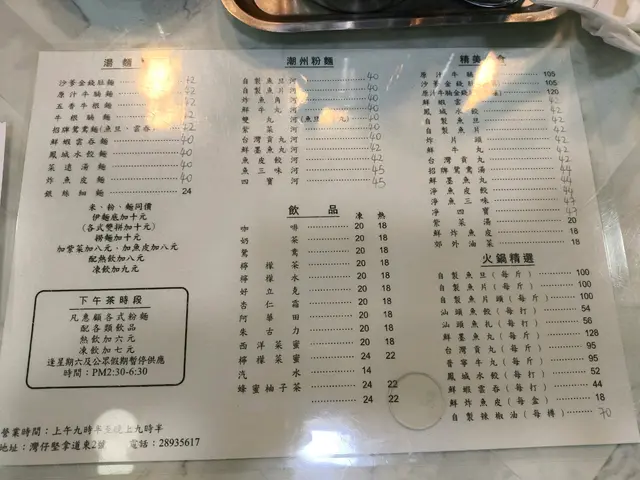 湯麵
沙爹金錢肚麵 42
原汁牛腩麵 42
五香牛根麵 42
牛根腩麵 42
招牌鴛鴦麵(魚旦、雲吞) 40
鮮蝦雲吞麵 40
鳳城水餃麵 40
菜遠湯麵 40
炸魚皮麵 40
銀絲細麵 24
米、粉、麵同價
伊麵底加十元
(各式雙拼加十元)
撈麵加十元
加紫菜加八元、加魚皮加八元
配熱飲加六元
凍飲加九元
下午茶時段
凡惠顧各式粉麵
配各類飲品
熱飲加六元
凍飲加七元
逢星期六及公眾假期暫停供應
時間：PM2:30-6:30
營業時間：上午九時半至晚上九時半
地址：灣仔堅拿道東2號 電話：28935617
潮州粉麵
自製魚旦河 40
自製魚片河 40
炸魚角河 40
鮮牛丸河 40
雙丸河 40
紫菜河 40
台灣貢丸河 42
鮮墨魚丸河 42
魚皮餃河 42
魚三寶河 45
四寶河 45
飲品 凍 熱
咖啡 20 18
奶茶 20 18
鴛鴦 20 18
檸檬茶 20 18
檸檬水 20 18
好立克 20 18
杏仁霜 20 18
阿華田 20 18
朱古力 20 18
西洋菜蜜 20 18
檸檬菜蜜 24 22
汽水 14
蜂蜜柚子茶 24 22
24 22
原汁牛腩 105
沙爹金錢肚 105
原汁牛腩金錢肚 120
鮮蝦雲吞
鳳城水餃
自製魚旦
自製魚片頭
鮮牛丸
台灣貢丸
招牌鴛鴦湯
鮮墨魚丸
淨魚皮餃
淨魚三味
淨四寶
紫菜湯 20
鮮炸魚皮 18
郊外油菜 18
火鍋精選
自製魚旦(每斤) 100
自製魚片(每斤) 100
自製魚片頭(每斤) 100
汕頭魚餃(每打) 54
汕頭魚札(每打) 56
鮮墨魚丸(每斤) 128
台灣貢丸(每斤) 95
普寧牛丸(每斤) 95
鳳城水餃(每打) 52
鮮蝦雲吞(每打) 44
鮮炸魚皮(每盒) 18
自製辣椒油(每樽) 70